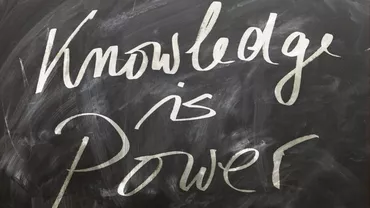 Knowledge
is
Power